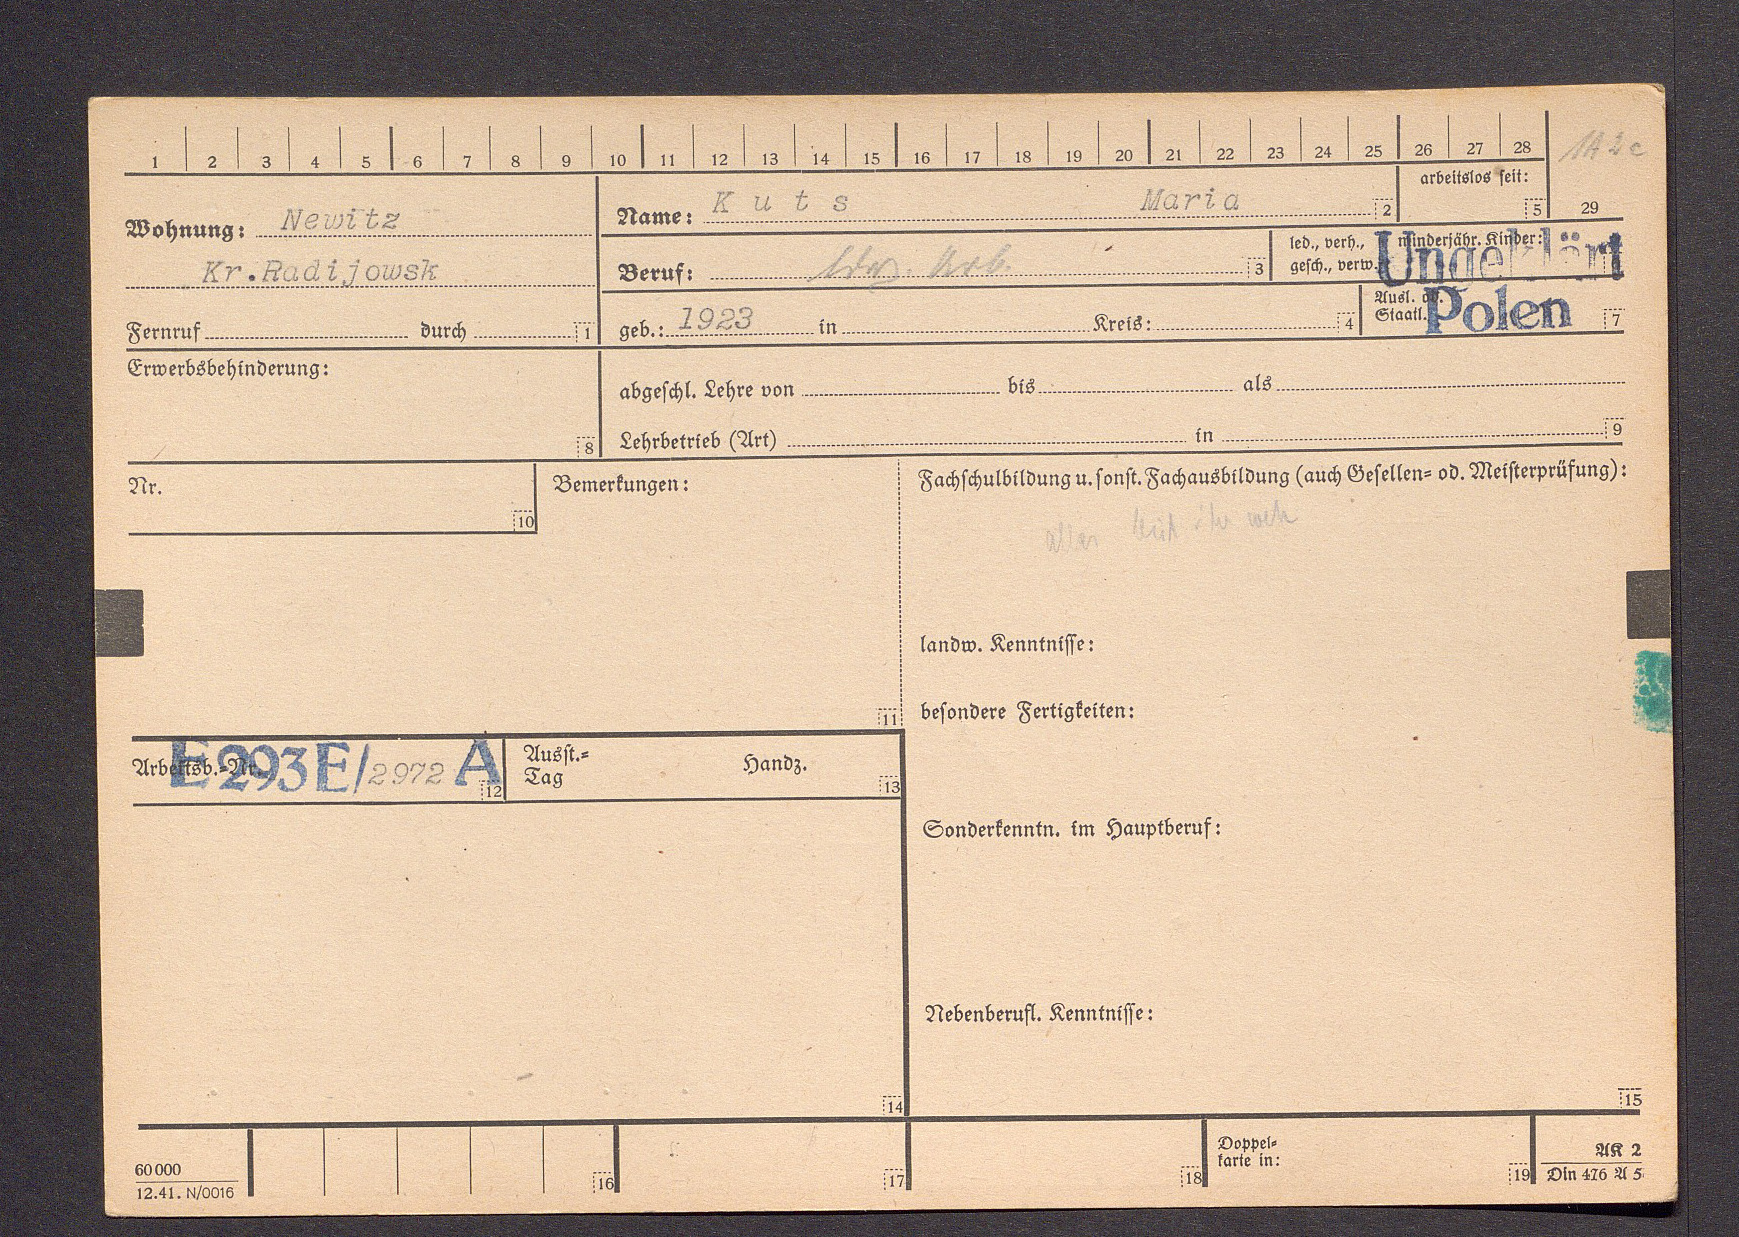 1 2 3 4 5 6 7 8 9 10 11 12 13 14 15 16 17 18 19 20 21 22 23 24 25 26 27 28 29
Wohnung: Newitz
Kr.Radijowsk
Fernruf durch 1
Name: Kuts Maria 2
arbeitslos seit: 5
Beruf: Arb. 3
led., verh., gesch., verw.
minderjähr. Kinder:
Ungeklärt
geb.: 1923 in Kreis: 4
Ausl. od. Staatl. Polen 7
Erwerbsbehinderung: 8
abgeschl. Lehre von bis als
Lehrbetrieb (Art) in 9
Nr. 10
Bemerkungen: 11
Fachschulbildung u. sonst. Fachausbildung (auch Gesellen= od. Meisterprüfung):
landw. Kenntnisse:
besondere Fertigkeiten:
Arbeitsb.=Nr. E 293 E/2972 A 12
Ausst.=
Tag Handz. 13
Sonderkenntn. im Hauptberuf:
Nebenberufl. Kenntnisse:
14
15
60 000
12.41. N/0016
16 17 18
Doppel=
karte in: 19
AK 2
Din 476 A 5